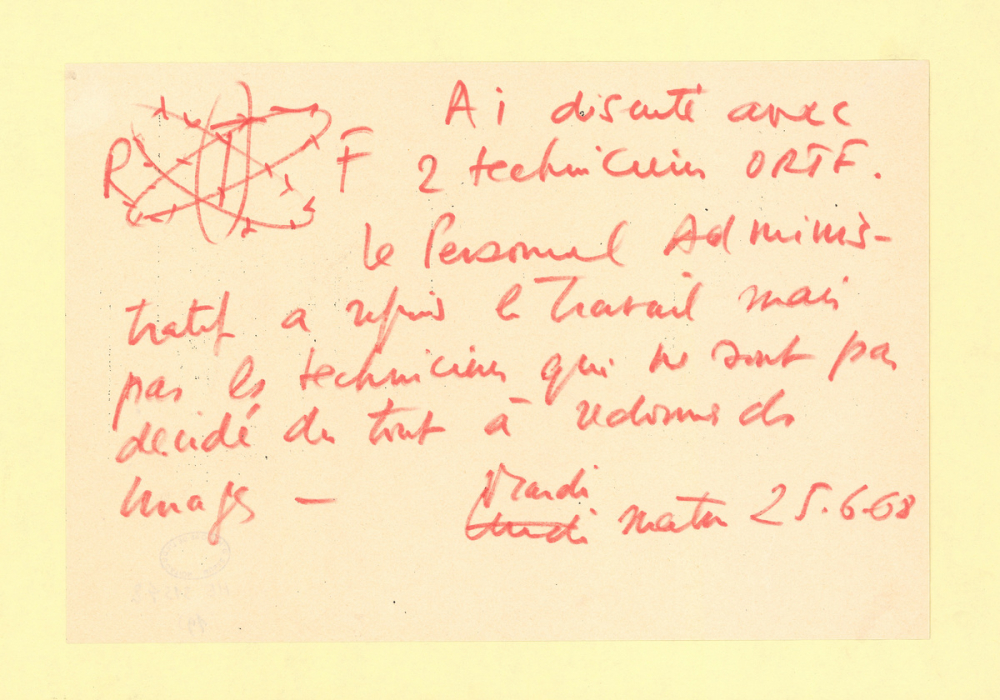 Ai discuté avec
R T F 2 techniciens ORTF.
le Personnel Adminis-
tratif a repris le Travail mais
pas les techniciens qui ne sont pas
décidé du tout à redonner des
Images -
Mardi
lundi matin 25.6.68